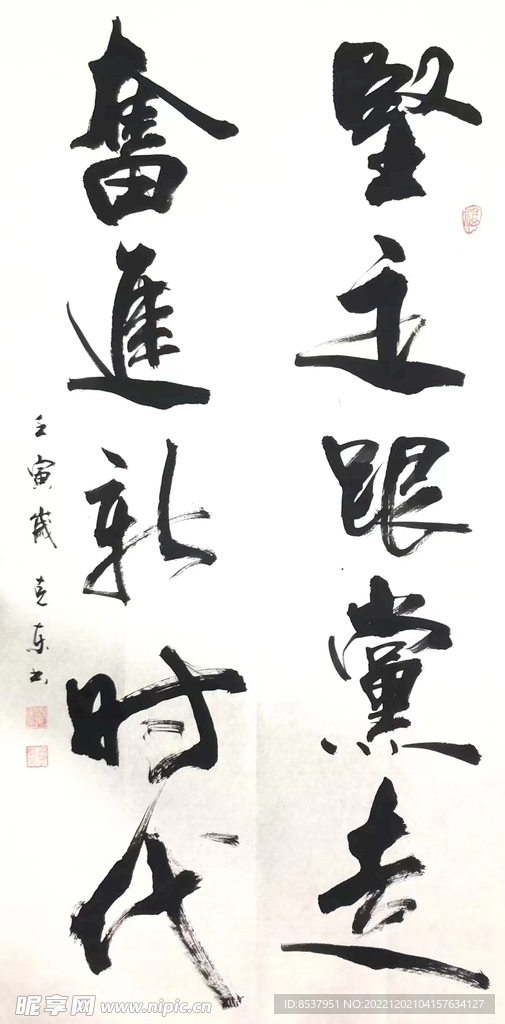 堅定跟黨走
奮進新时代
壬寅歲克东书
昵享网 www.nipic.cn
ID:8537951 NO:20221202104157634127